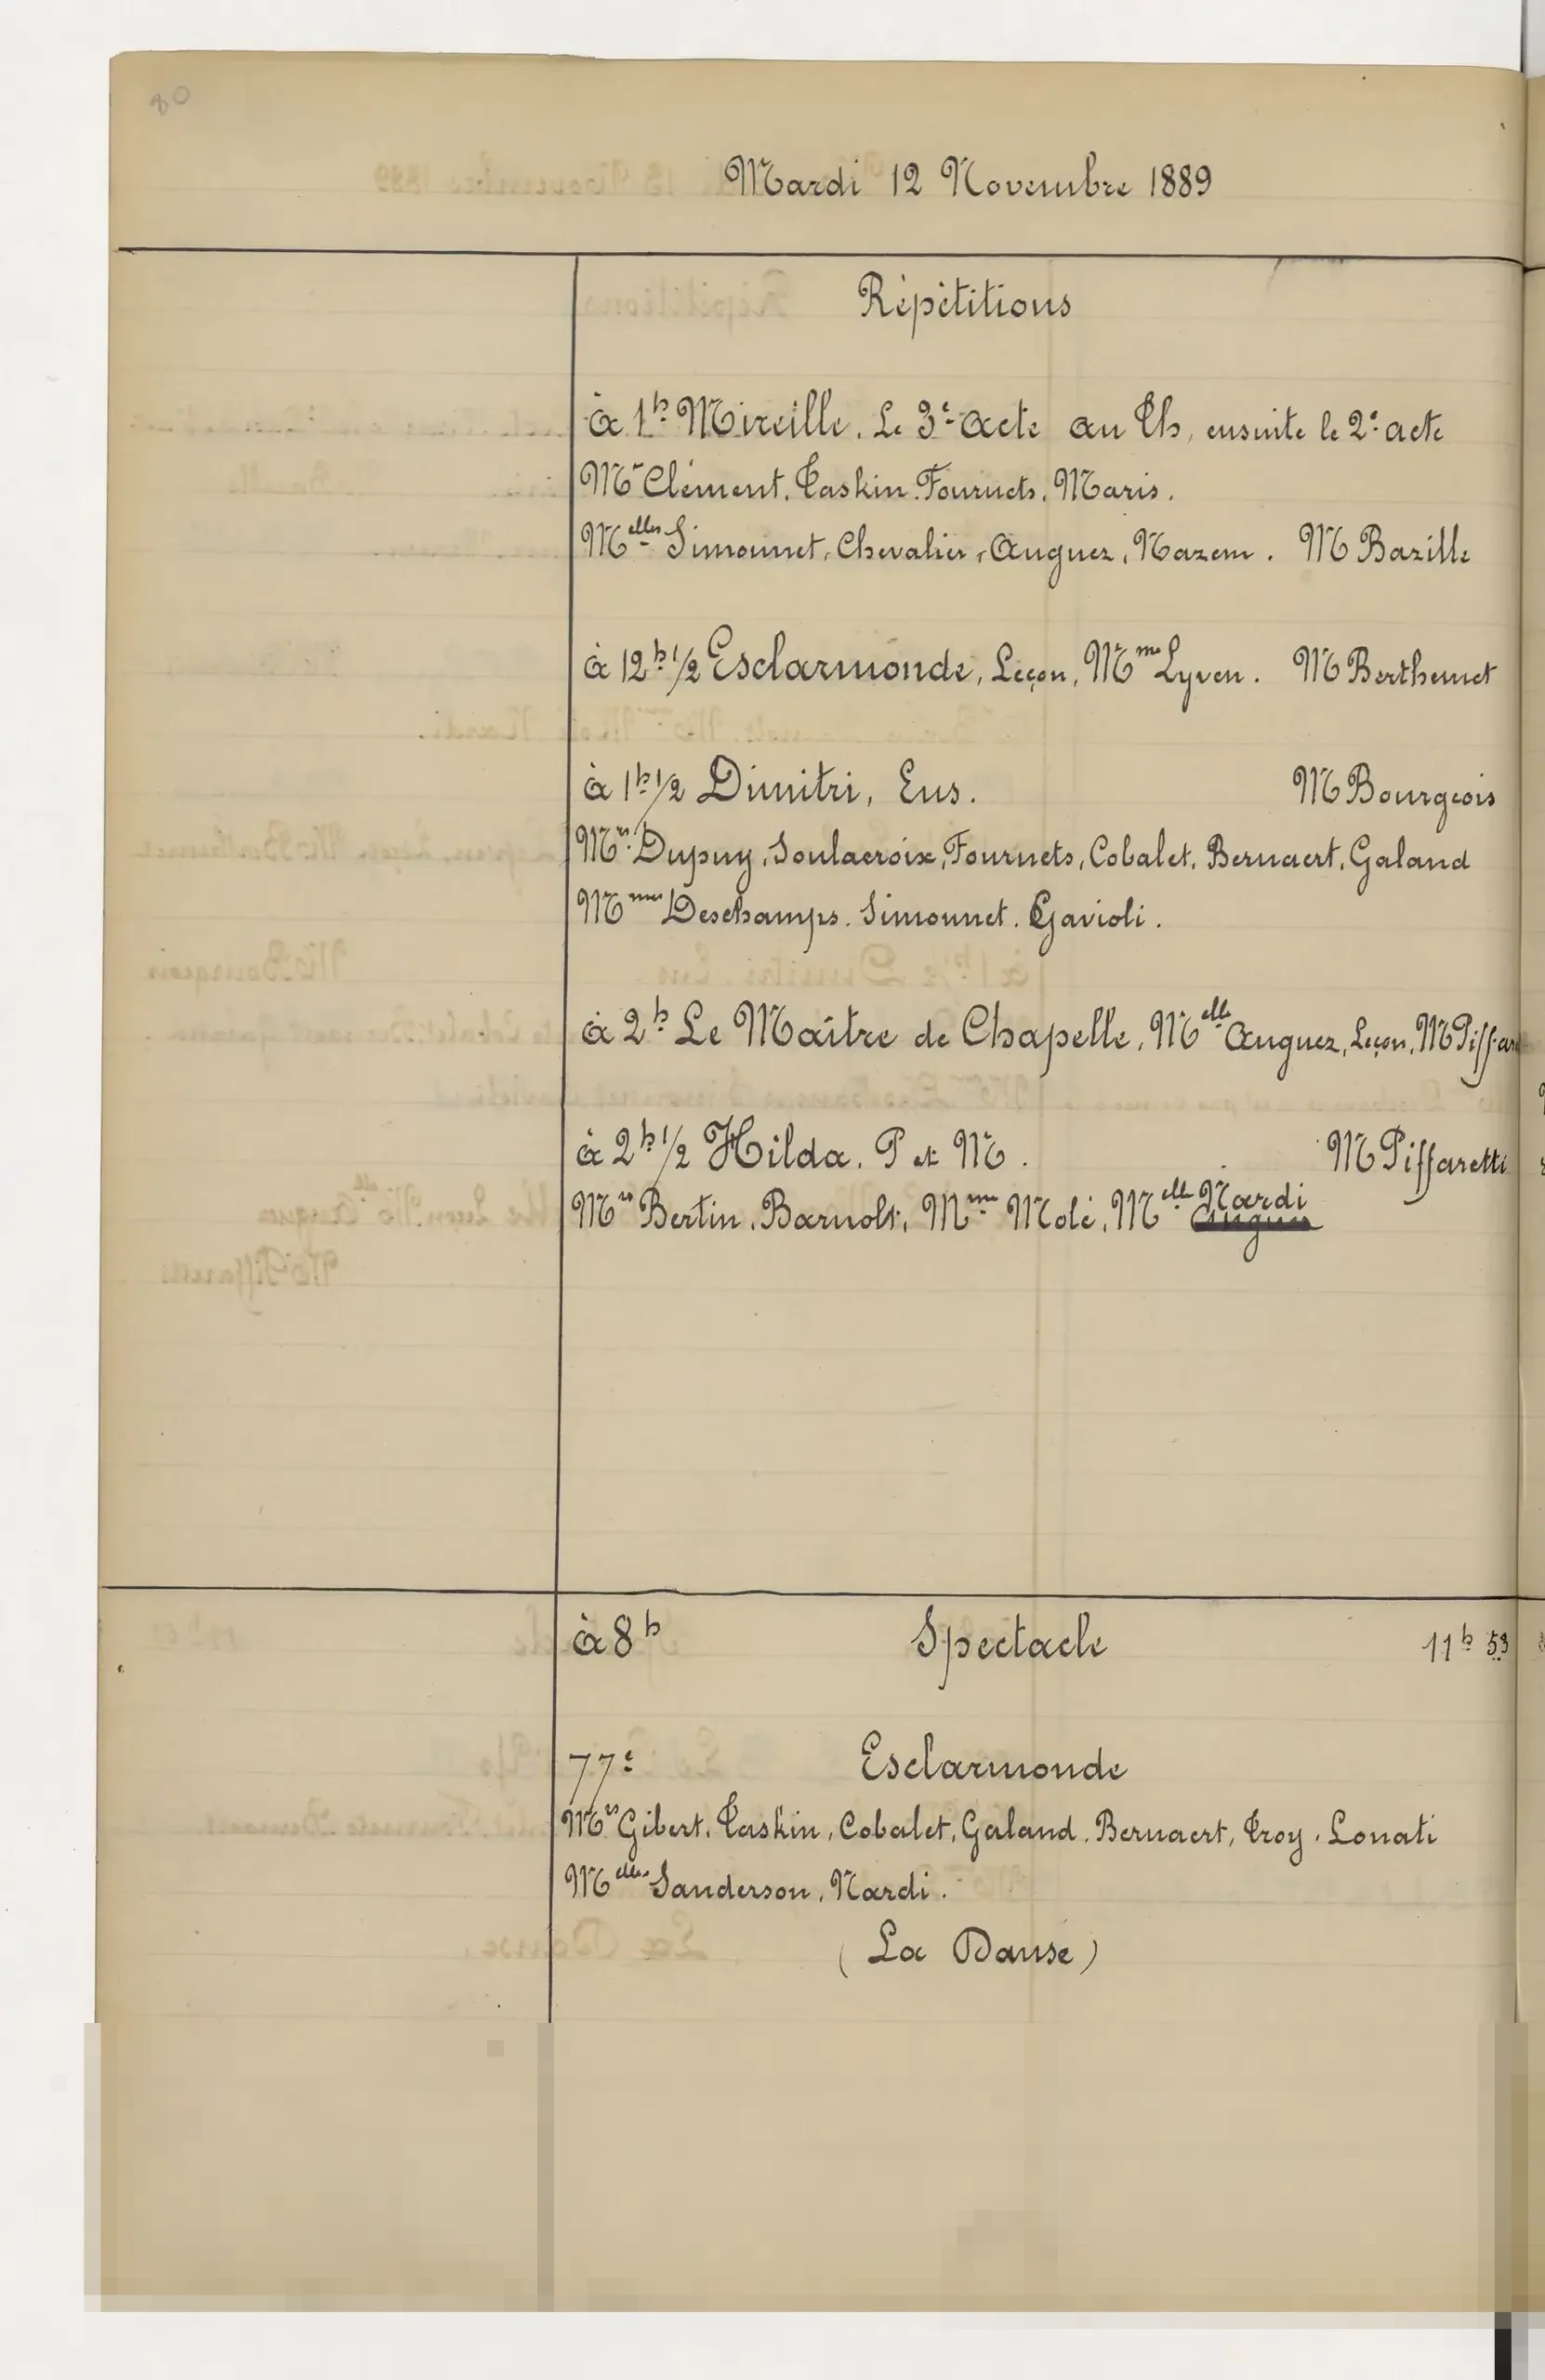 80
Mardi 12 Novembre 1889
Répétitions
à 1h Mireille. Le 3e acte au Th, ensuite le 2e acte
Mr Clément. Taskin. Fournets. Maris.
Melles Simonnet, Chevalier, Auguez, Nazem. M Bazille
à 12h 1/2 Esclarmonde, Leçon, Mme Lyven. M Berthemet
à 1h 1/2 Dimitri, Ens. M Bourgeois
Mrs Dupuy, Soulacroix, Fournets, Cobalet, Bernaert, Galand
Mmes Deschamps. Simonnet. Gavioli.
à 2h Le Maître de Chapelle, Melle Auguez, Leçon, M Piffare
à 2h 1/2 Hilda. P et M. M Piffaretti
Mrs Bertin, Barnolt, Mme Molé, Melle Nardi
Auguez
à 8h Spectacle 11h 53
77e Esclarmonde
Mrs Gibert, Taskin, Cobalet, Galand, Bernaert, Troy, Lonati
Melles Sanderson, Nardi.
(La Danse)